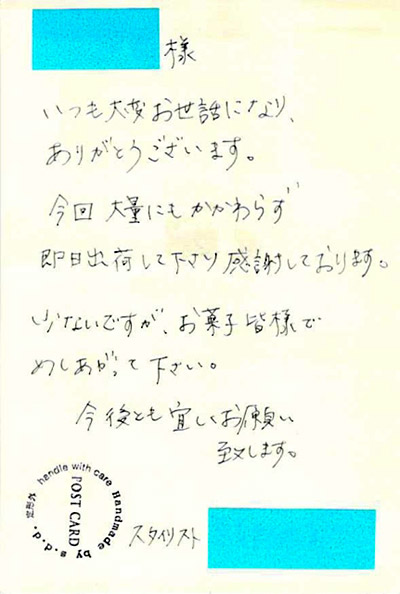 様
いつも大変お世話になり、
ありがとうございます。
今回 大量にもかかわらず
即日出荷して下さり感謝しております。
少ないですが、お菓子皆様で
めしあがって下さい。
今後とも宜しくお願い
致します。
handle with care Handmade by s.d.d.
POST CARD
スタイリスト